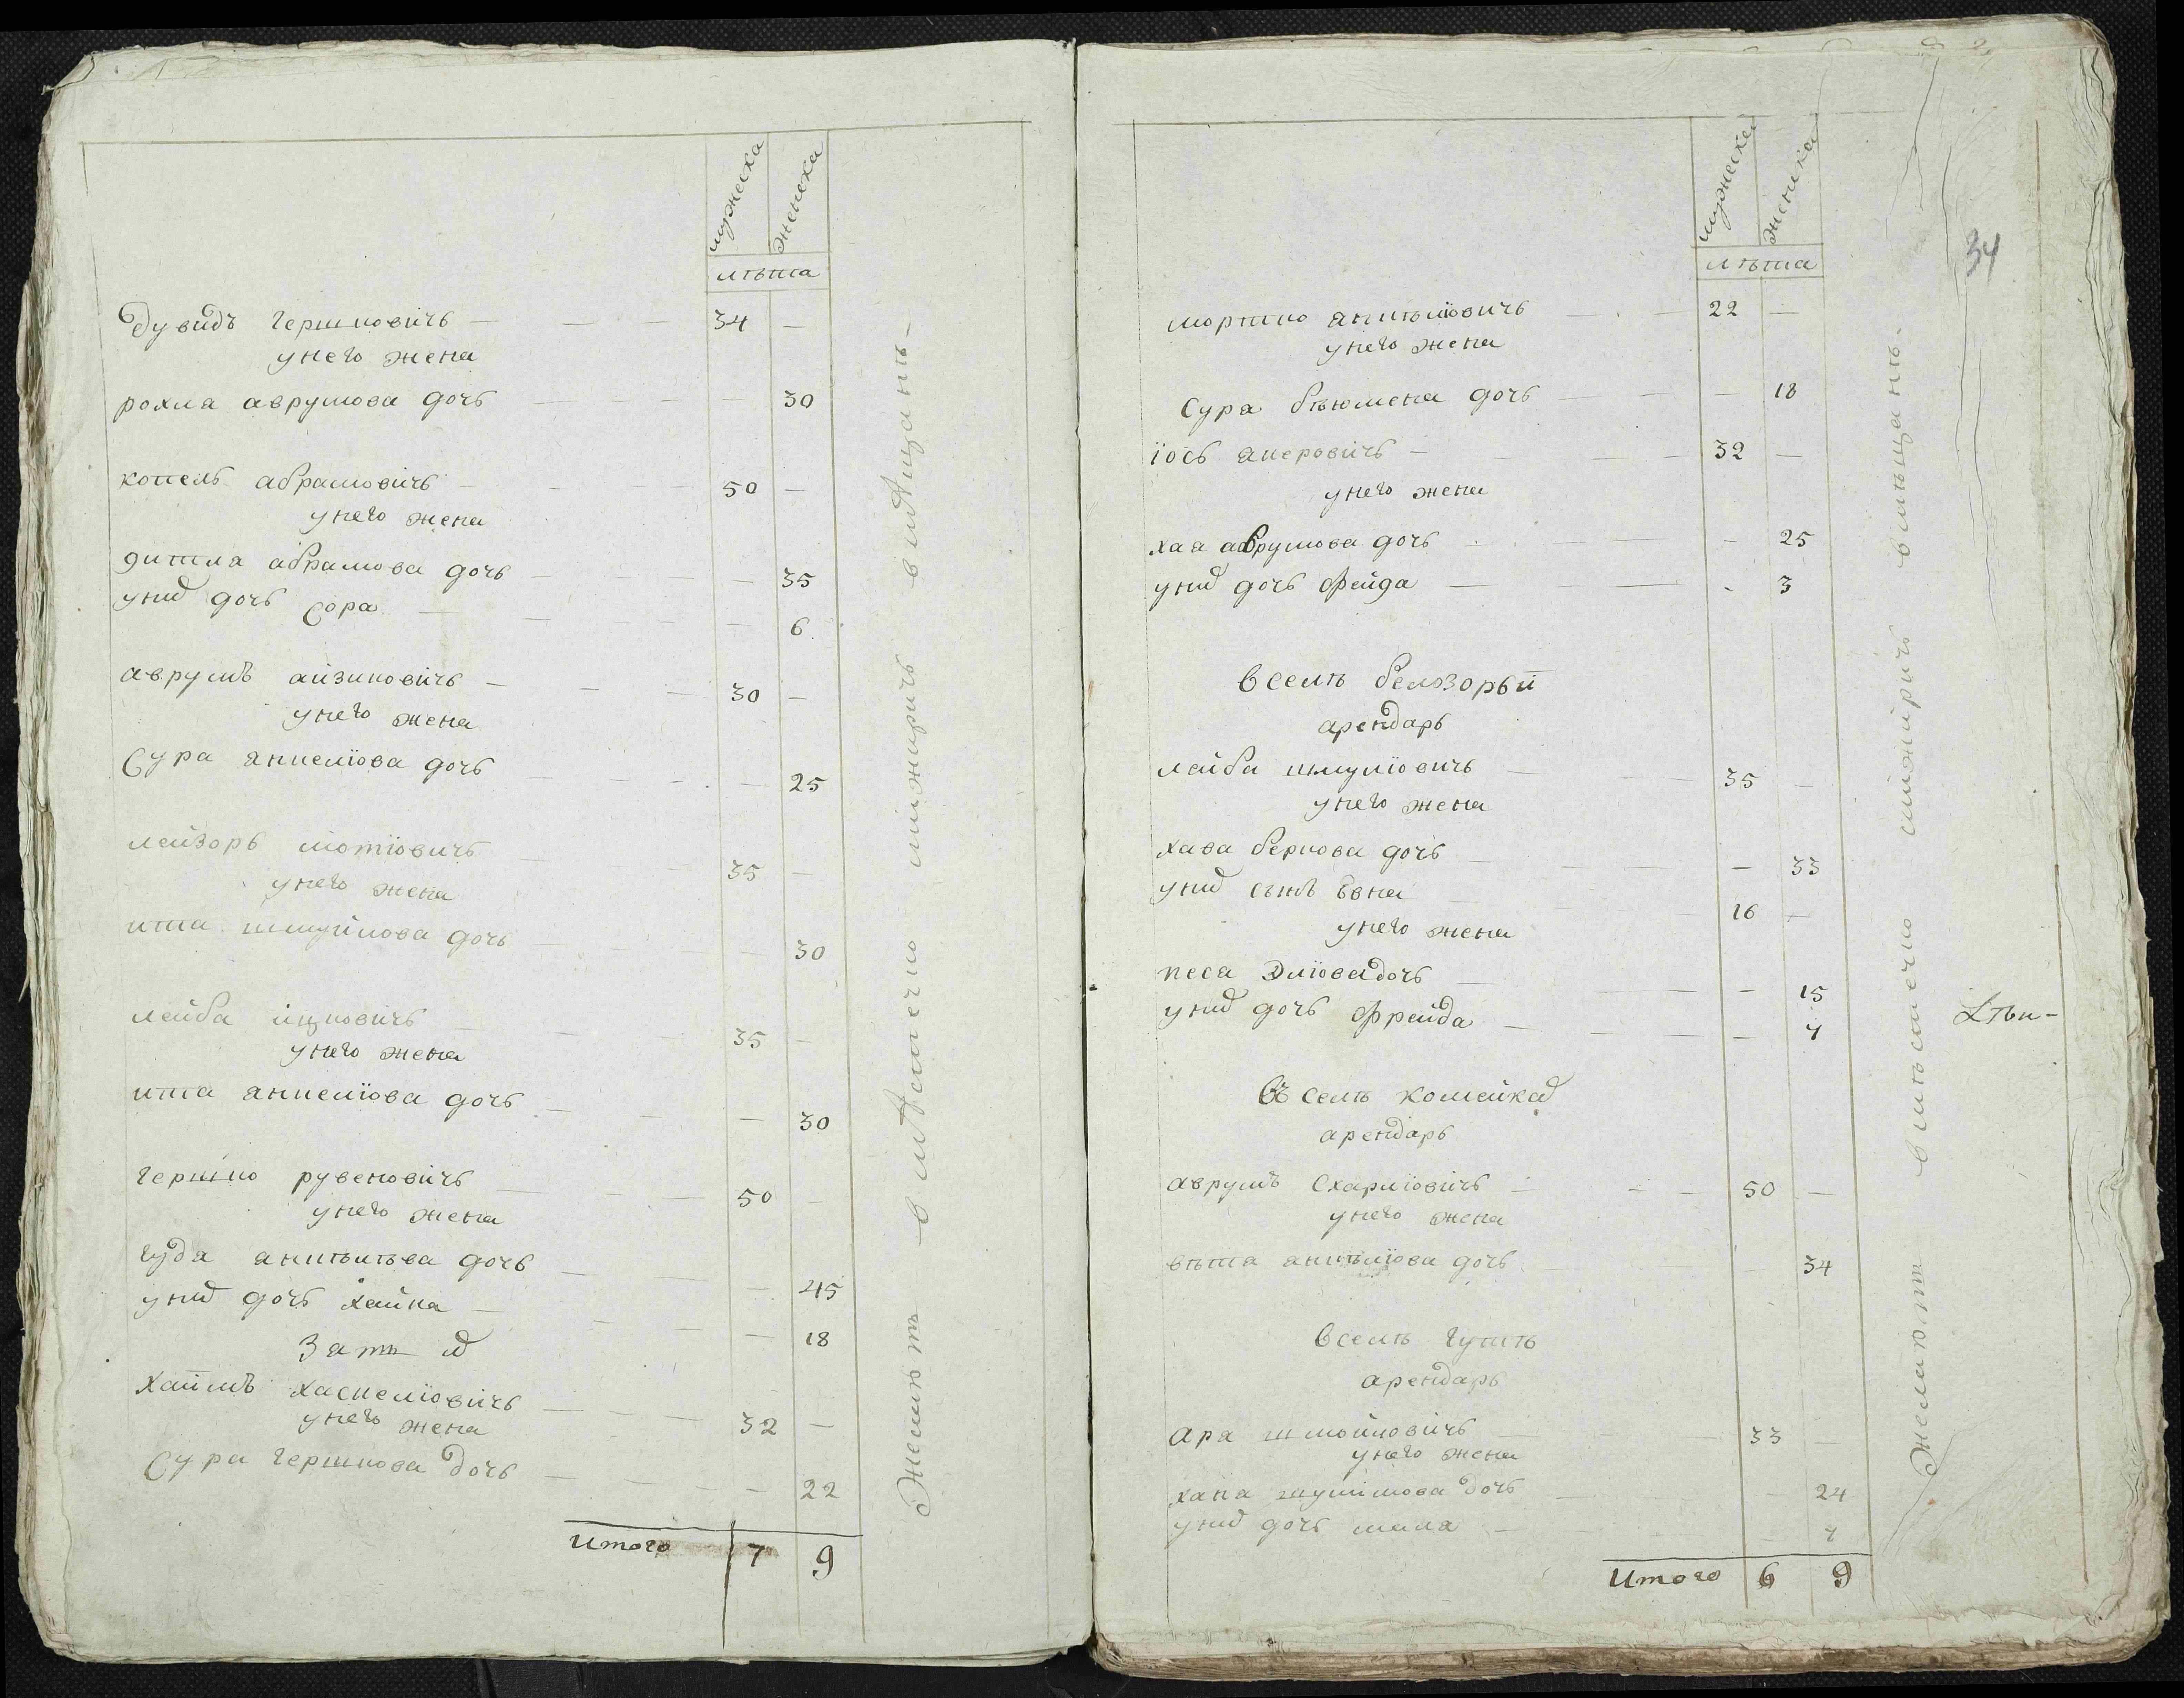 мужеска женска
лѣта
дувидъ гершковичъ — — — 34 —
унего жена
рохла аврумова дочь — — — — 30
копель абрамовичъ — — — 50 —
унего жена
дитла абрамова дочь — — 35
унихъ дочь сора — — — — 6
аврумъ айзиковичъ — — — 30 —
унего жена
Сура анкеліова дочь — — — — 25
лейзоръ мотіовичъ 35 —
унего жена
ита шмуйлова дочь — — — 30
лейба ицковичъ — — 35 —
унего жена
ита анкеліова дочь — — — 30
гершко рувеновичъ — — — 50 —
унего жена
гуда анкѣлѣва дочь — — 45
унихъ дочь хайка — — — — 18
Зять их
хаймъ хаскеліовичъ — — — 32 —
унего жена
Сура гершкова дочь — — — — 22
итого 7 9
Желают в мѣстечко межиричъ вмѣщане
34
мужеска женска
лѣта
мортко анкѣліовичъ — — — 22 —
унего жена
Сура дочь — — — 18
іось анеровичъ — — — — 32 —
унего жена
хая аврумова дочь — — — 25
унихъ дочь фейга — — - 3
вселѣ белозорьи
арендарь
лейба шмуліовичъ — — 35 —
унего жена
хава беркова дочь — — — — 33
унихъ сынъ — — 16 —
унего жена
песа Эліова дочь — — — — 15
унихъ дочь Фрейда — — — — 4
Въ селѣ комейках
арендарь
аврумъ Схарліовичъ — — — 50 —
унего жена
вѣта анкѣліова дочь — — — 34
вселѣ гутѣ
арендарь
Ара шмойловичъ — — — 33 —
унего жена
хана дочь — — — 24
унихъ дочь мала — — — 4
итого 6 9
Желают вмѣстечко межиричъ вмѣщане.